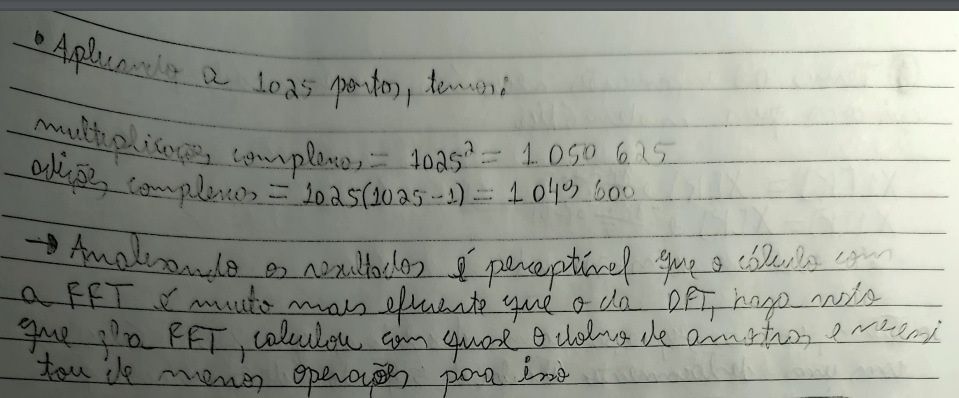 • Aplicando a 1025 pontos, temos:
multiplicações complexas = 1025² = 1 050 625
adições complexas = 1025(1025-1) = 1 049 600
→ Analisando os resultados é perceptível que o cálculo com
a FFT é muito mais eficiente que o da DFT, haja visto
que a FFT, calculou com quase o dobro de amostras e necessi
tou de menos operações para isso